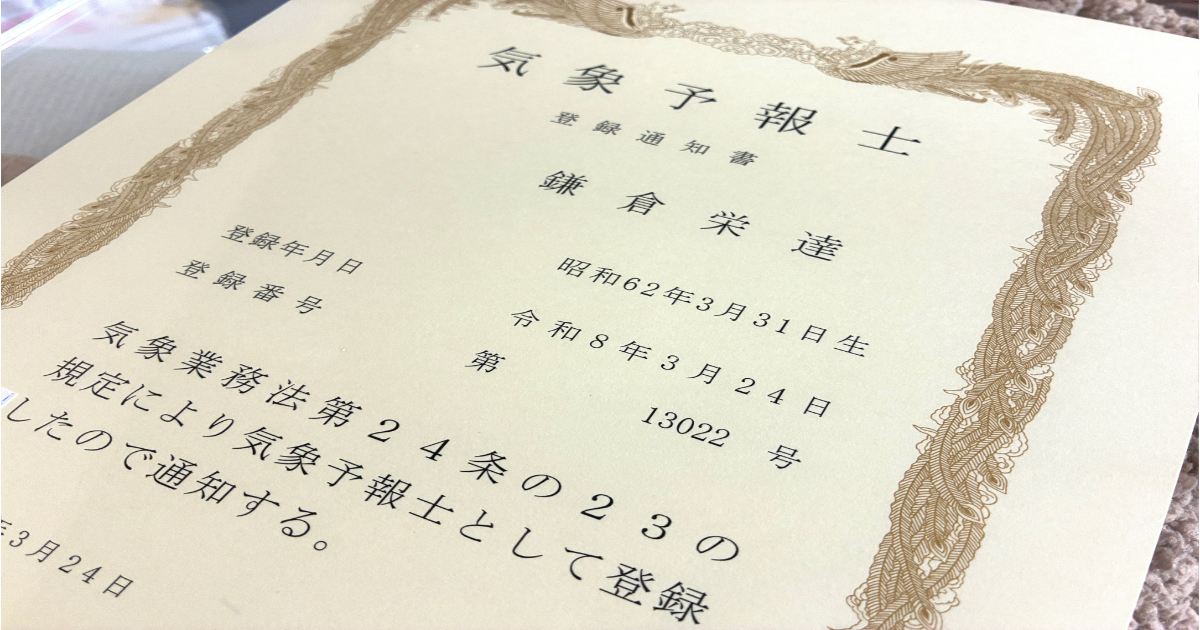 気象予報士
登録通知書
鎌倉栄達
昭和62年3月31日生
登録年月日 令和8年3月24日
登録番号 第 13022 号
気象業務法第24条の23の
規定により気象予報士として登録
したので通知する。
年3月24日